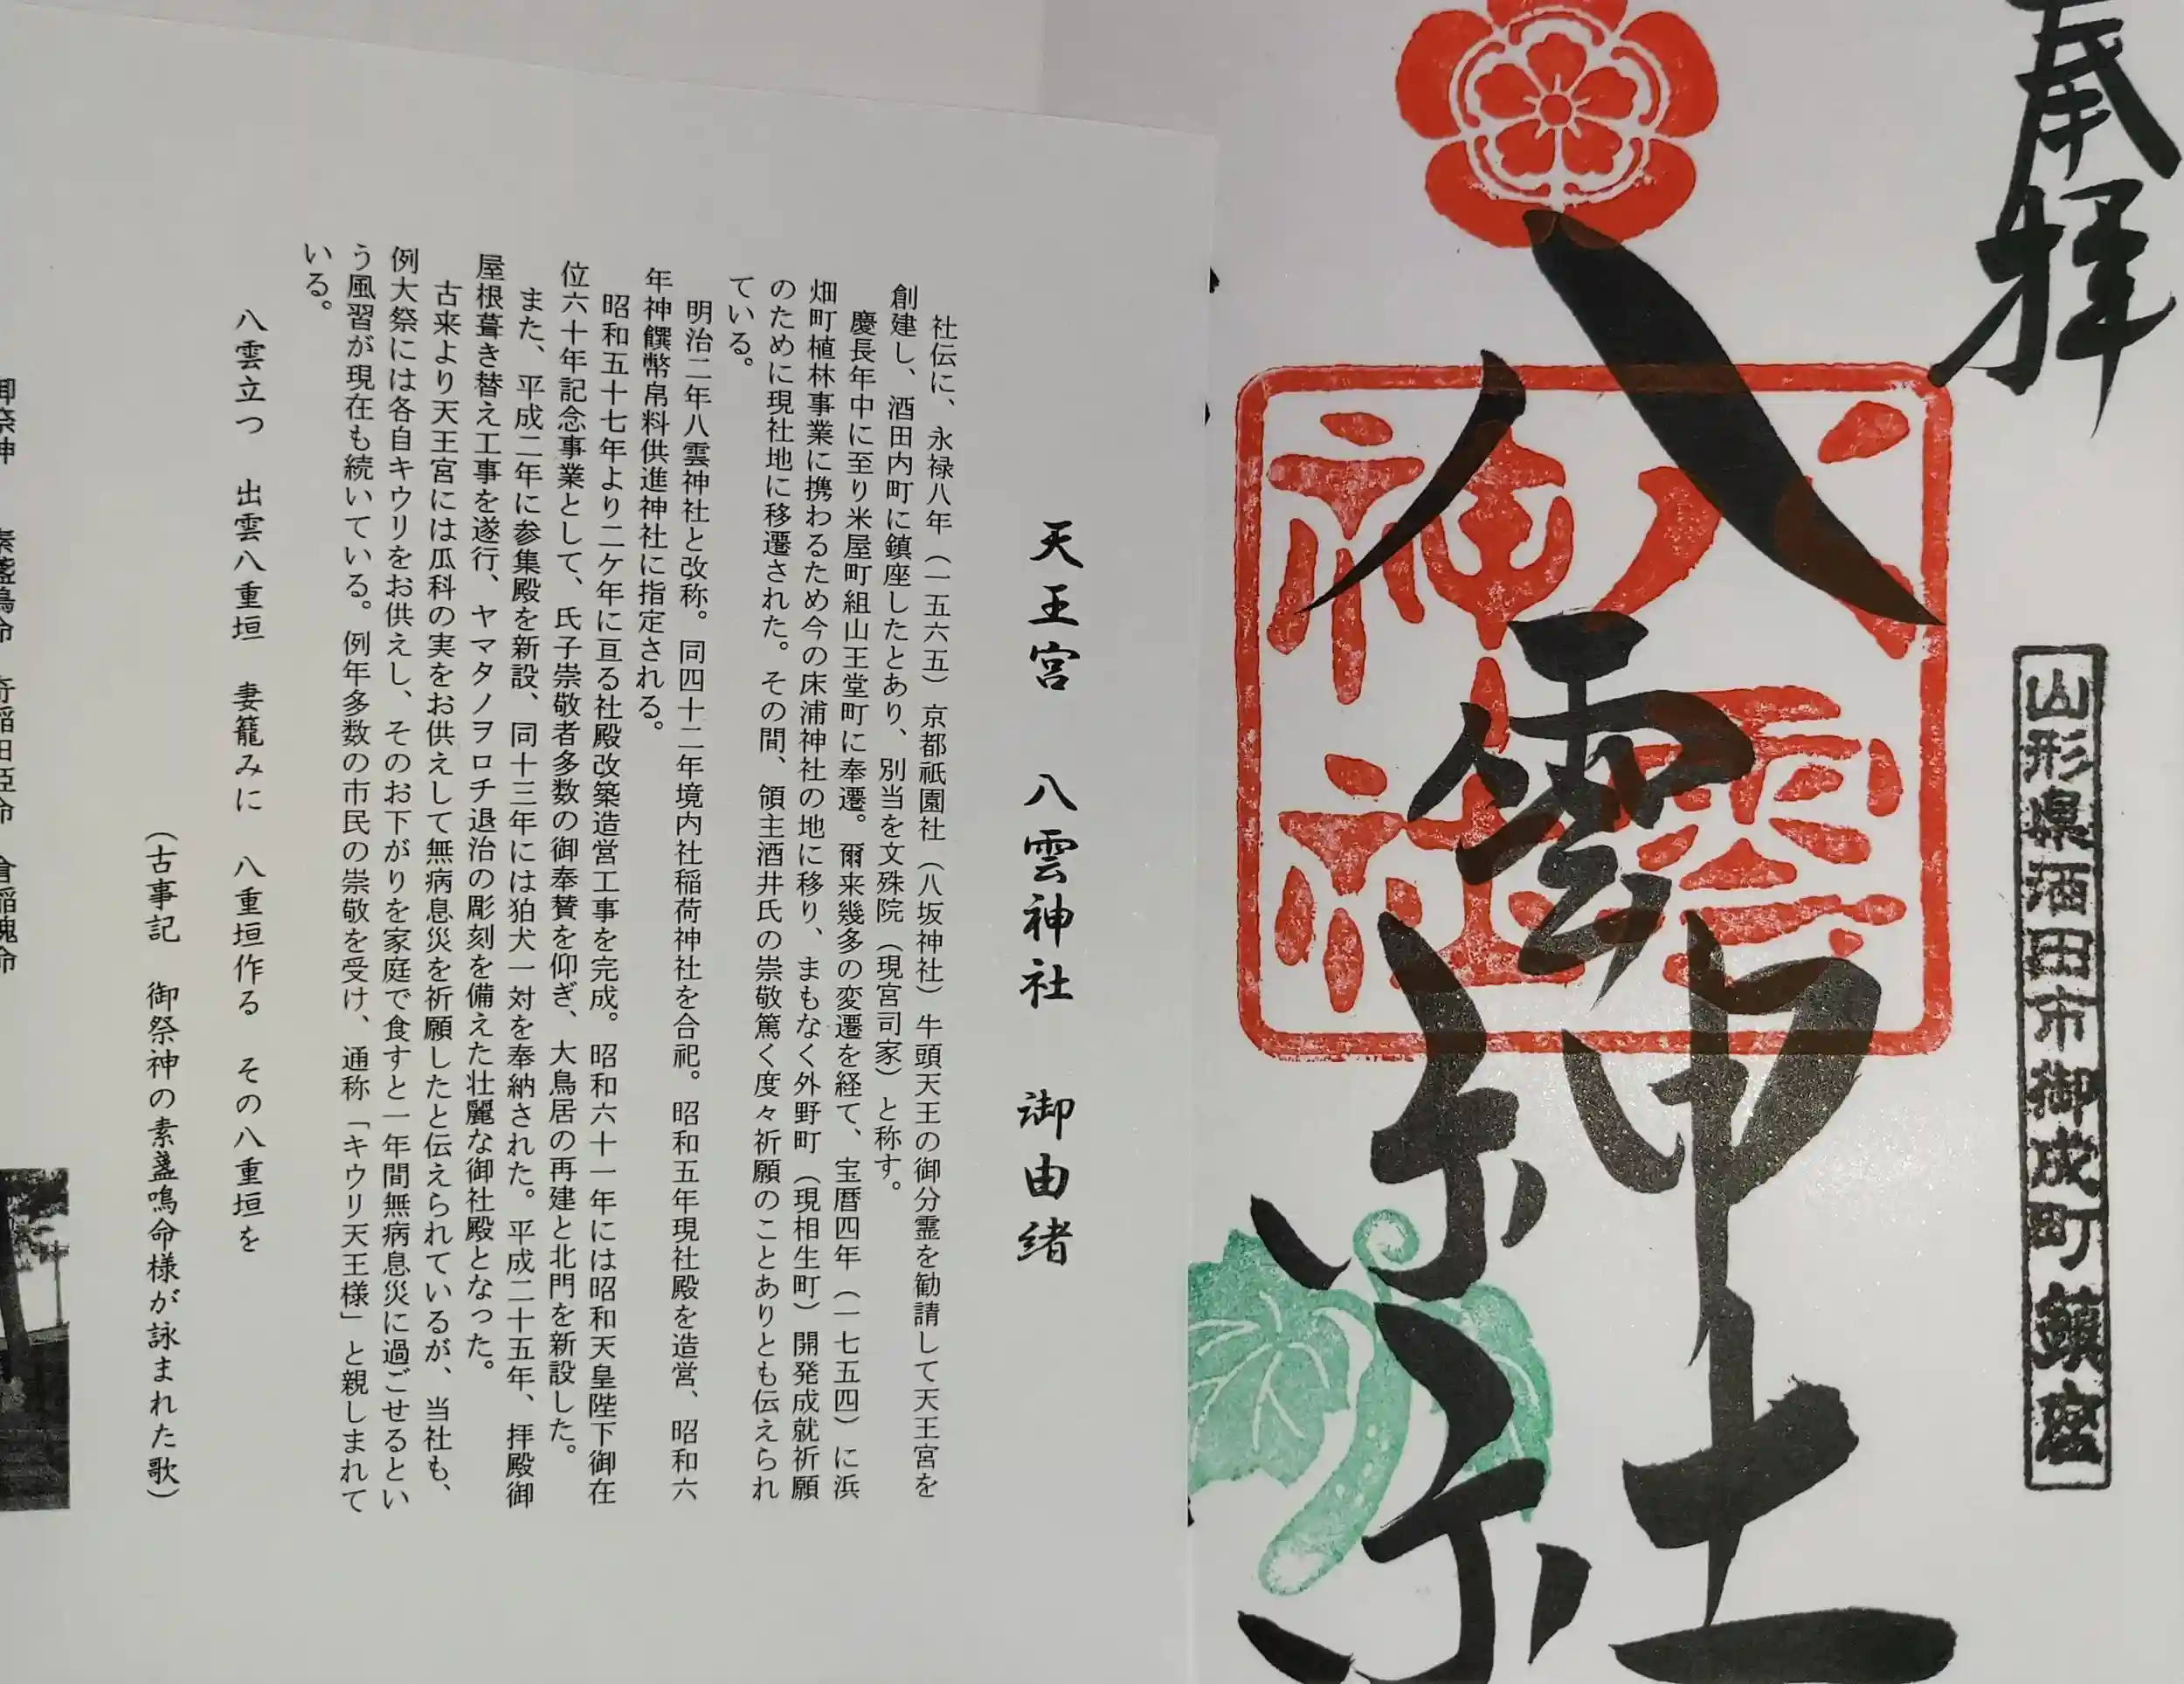 奉拝
山形県酒田市御成町鎮座
八雲神社
八雲神社
天王宮　八雲神社　御由緒
社伝に、永禄八年（一五六五）京都祇園社（八坂神社）牛頭天王の御分霊を勧請して天王宮を
創建し、酒田内町に鎮座したとあり、別当を文殊院（現宮司家）と称す。
慶長年中に至り米屋町組山王堂町に奉遷。爾来幾多の変遷を経て、宝暦四年（一七五四）に浜
畑町植林事業に携わるため今の床浦神社の地に移り、まもなく外野町（現相生町）開発成就祈願
のために現社地に移遷された。その間、領主酒井氏の崇敬篤く度々祈願のことありとも伝えられ
ている。
明治二年八雲神社と改称。同四十二年境内社稲荷神社を合祀。昭和五年現社殿を造営、昭和六
年神饌幣帛料供進神社に指定される。
昭和五十七年より二ケ年に亘る社殿改築造営工事を完成。昭和六十一年には昭和天皇陛下御在
位六十年記念事業として、氏子崇敬者多数の御奉賛を仰ぎ、大鳥居の再建と北門を新設した。
また、平成二年に参集殿を新設、同十三年には狛犬一対を奉納された。平成二十五年、拝殿御
屋根葺き替え工事を遂行、ヤマタノヲロチ退治の彫刻を備えた壮麗な御社殿となった。
古来より天王宮には瓜科の実をお供えして無病息災を祈願したと伝えられているが、当社も、
例大祭には各自キウリをお供えし、そのお下がりを家庭で食すと一年間無病息災に過ごせるとい
う風習が現在も続いている。例年多数の市民の崇敬を受け、通称「キウリ天王様」と親しまれて
いる。
八雲立つ　出雲八重垣　妻籠みに　八重垣作る　その八重垣を
（古事記　御祭神の素盞鳴命様が詠まれた歌）
御祭神　素盞鳴命　奇稲田臣命　倉稲魂命